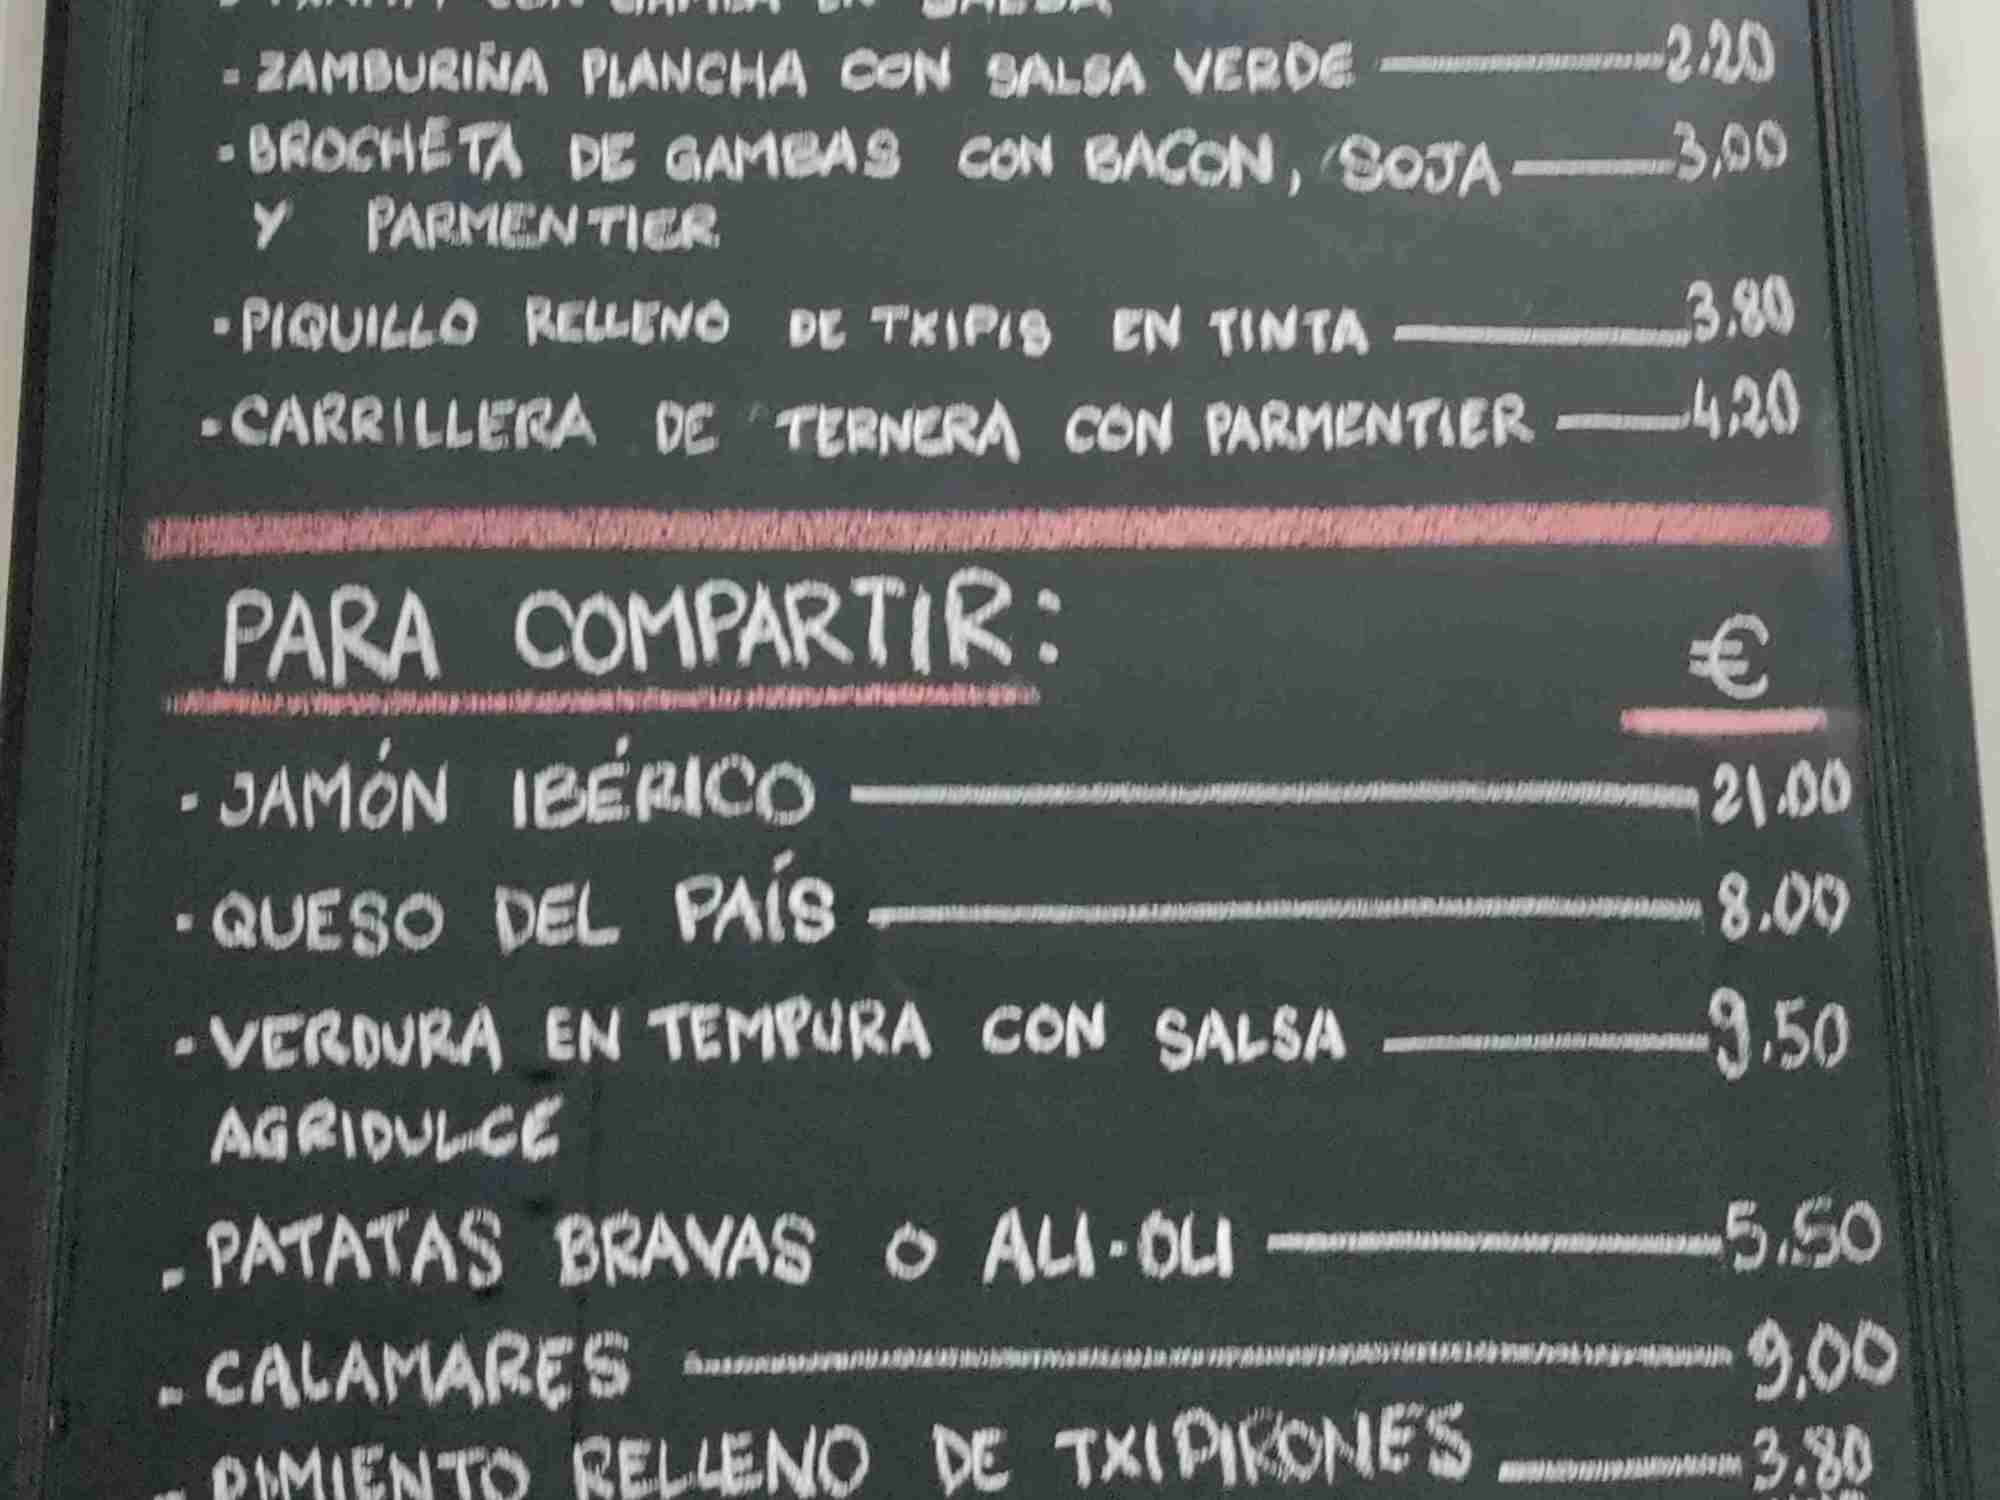 CON GAMBA EN SALSA
- ZAMBURIÑA PLANCHA CON SALSA VERDE 2.20
- BROCHETA DE GAMBAS CON BACON, SOJA 3,00
Y PARMENTIER
- PIQUILLO RELLENO DE TXIPIS EN TINTA 3.80
- CARRILLERA DE TERNERA CON PARMENTIER 4,20
PARA COMPARTIR: €
- JAMÓN IBÉRICO 21.00
- QUESO DEL PAÍS 8.00
- VERDURA EN TEMPURA CON SALSA 9.50
AGRIDULCE
- PATATAS BRAVAS O ALI-OLI 5.50
- CALAMARES 9,00
- PIMIENTO RELLENO DE TXIPIRONES 3.80